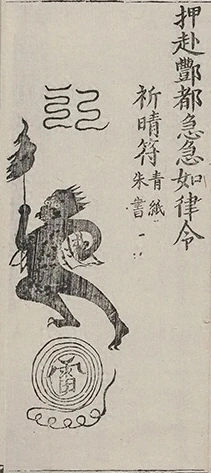 押赴酆都急急如律令
祈晴符青紙朱書
雷